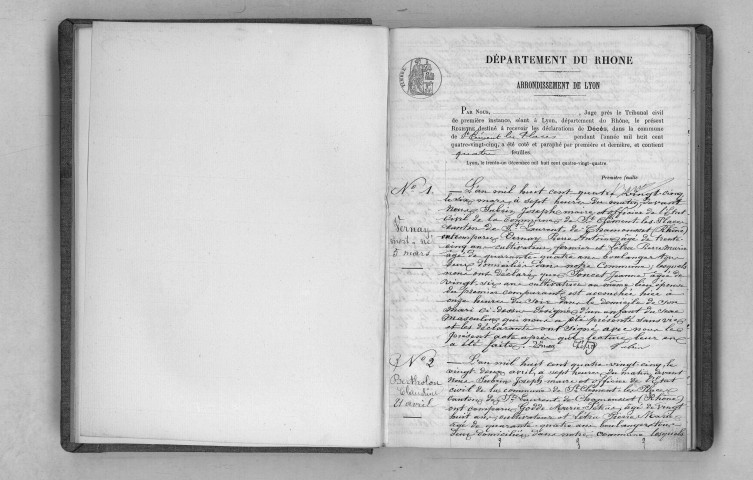 DÉPARTEMENT DU RHONE
ARRONDISSEMENT DE LYON
PAR NOUS, , Juge près le Tribunal civil
de première instance, séant à Lyon, département du Rhône, le présent
REGISTRE destiné à recevoir les déclarations de Décès, dans la commune
de St Clément les Places pendant l'année mil huit cent
quatre-vingt-cinq, a été coté et paraphé par première et dernière, et contient
quatre feuilles.
Lyon, le trente-un décembre mil huit cent quatre-vingt-quatre.
Première feuille
No 1.
Vernay
mort-né
5 mars
L'an mil huit cent quatre vingt cinq
le six mars à sept heures du matin, devant
Nous Subrin Joseph maire et officier de l'Etat
Civil de la Commune de St Clément-les-Places
canton de St Laurent de Chamousset (Rhône)
ont comparu Vernay Antoine âgé de trente
cinq ans cultivateur et Pierre Marie
âgé de quarante quatre ans boulanger tous
deux domiciliés dans notre Commune lesquels
nous ont déclaré que Poncet Jeanne âgée de
vingt six ans cultivatrice au même lieu épouse
du premier comparant est accouchée hier à
onze heures du soir dans le domicile de son
mari ci-dessus désigné d'un enfant du sexe
Masculin qui nous a été présenté sans vie
et les déclarants ont signé avec nous le
présent acte après que lecture leur en
a été faite.
No 2
Bertholon
Claudine
21 avril
L'an mil huit cent quatre vingt-cinq, le
vingt deux avril, à sept heures du matin devant
Nous Subrin Joseph maire et officier de l'Etat
civil de la commune de St Clément-les-Places
canton de St Laurent de Chamousset (Rhône)
ont comparu Marie âgé de vingt
huit ans, cultivateur et Pierre Marie
âgé de quarante quatre ans boulanger tous
deux domiciliés dans notre commune lesquels